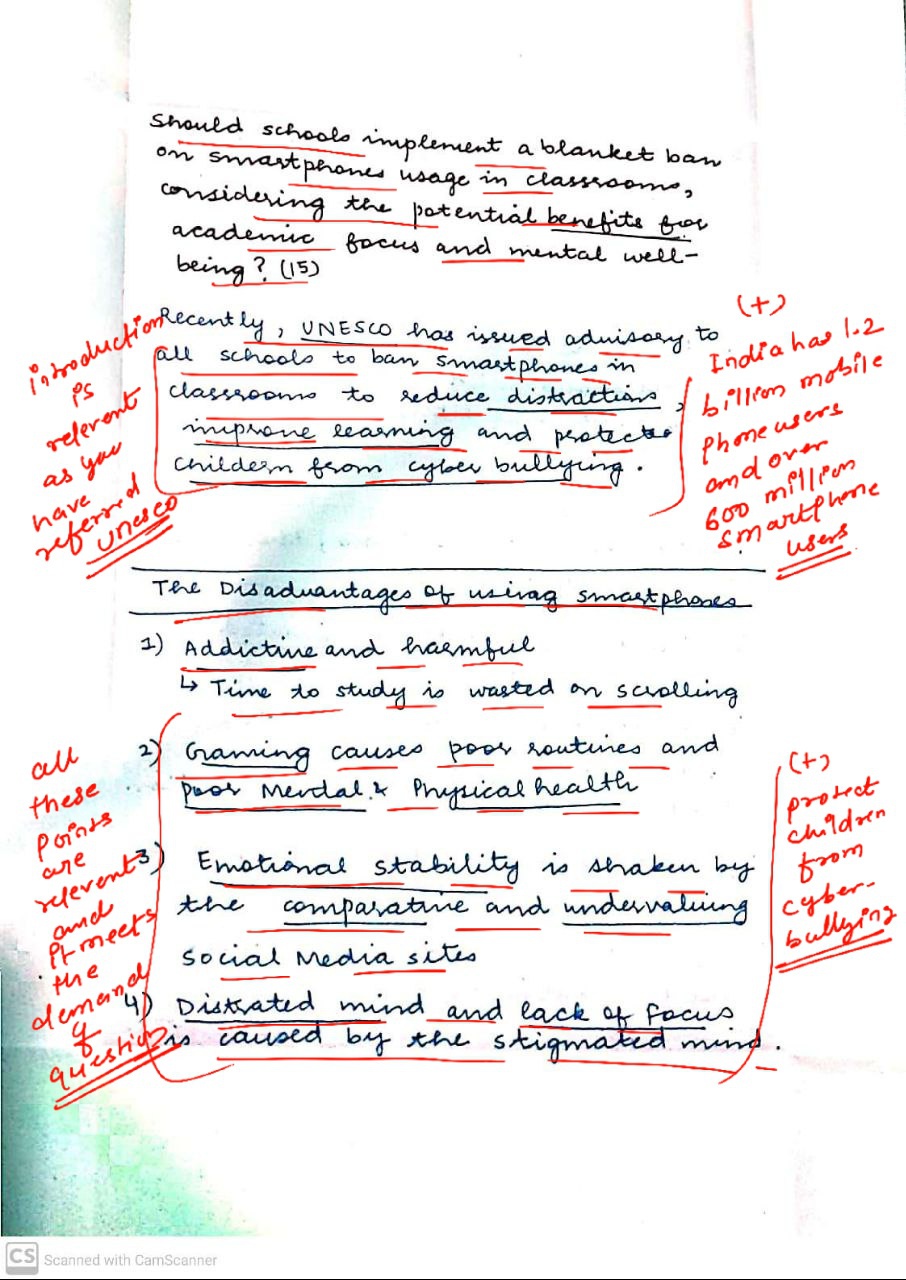 Should schools implement a blanket ban
on smartphones usage in classrooms,
considering the potential benefits for
academic focus and mental well-
being? (15)
Recently, UNESCO has issued advisory to
all schools to ban smartphones in
classrooms to reduce distractions,
improve learning and protect
childern from cyber bullying.
introduction
is
relevent
as you
have
referred
Unesco
(+)
India has 1.2
billion mobile
phone users
and over
600 million
smartphone
users
The Disadvantages of using smartphones
1) Addictive and harmful
↳ Time to study is wasted on scrolling
2) Gaming causes poor routines and
poor Mental & Physical health
3) Emotional stability is shaken by
the comparative and undervaluing
social Media sites
4) Distrated mind and lack of Focus
is caused by the stigmated mind.
all
these
points
are
relevent
and
it meets
the
demand
of
question
(+)
protect
children
from
cyber-
bullying
CS Scanned with CamScanner